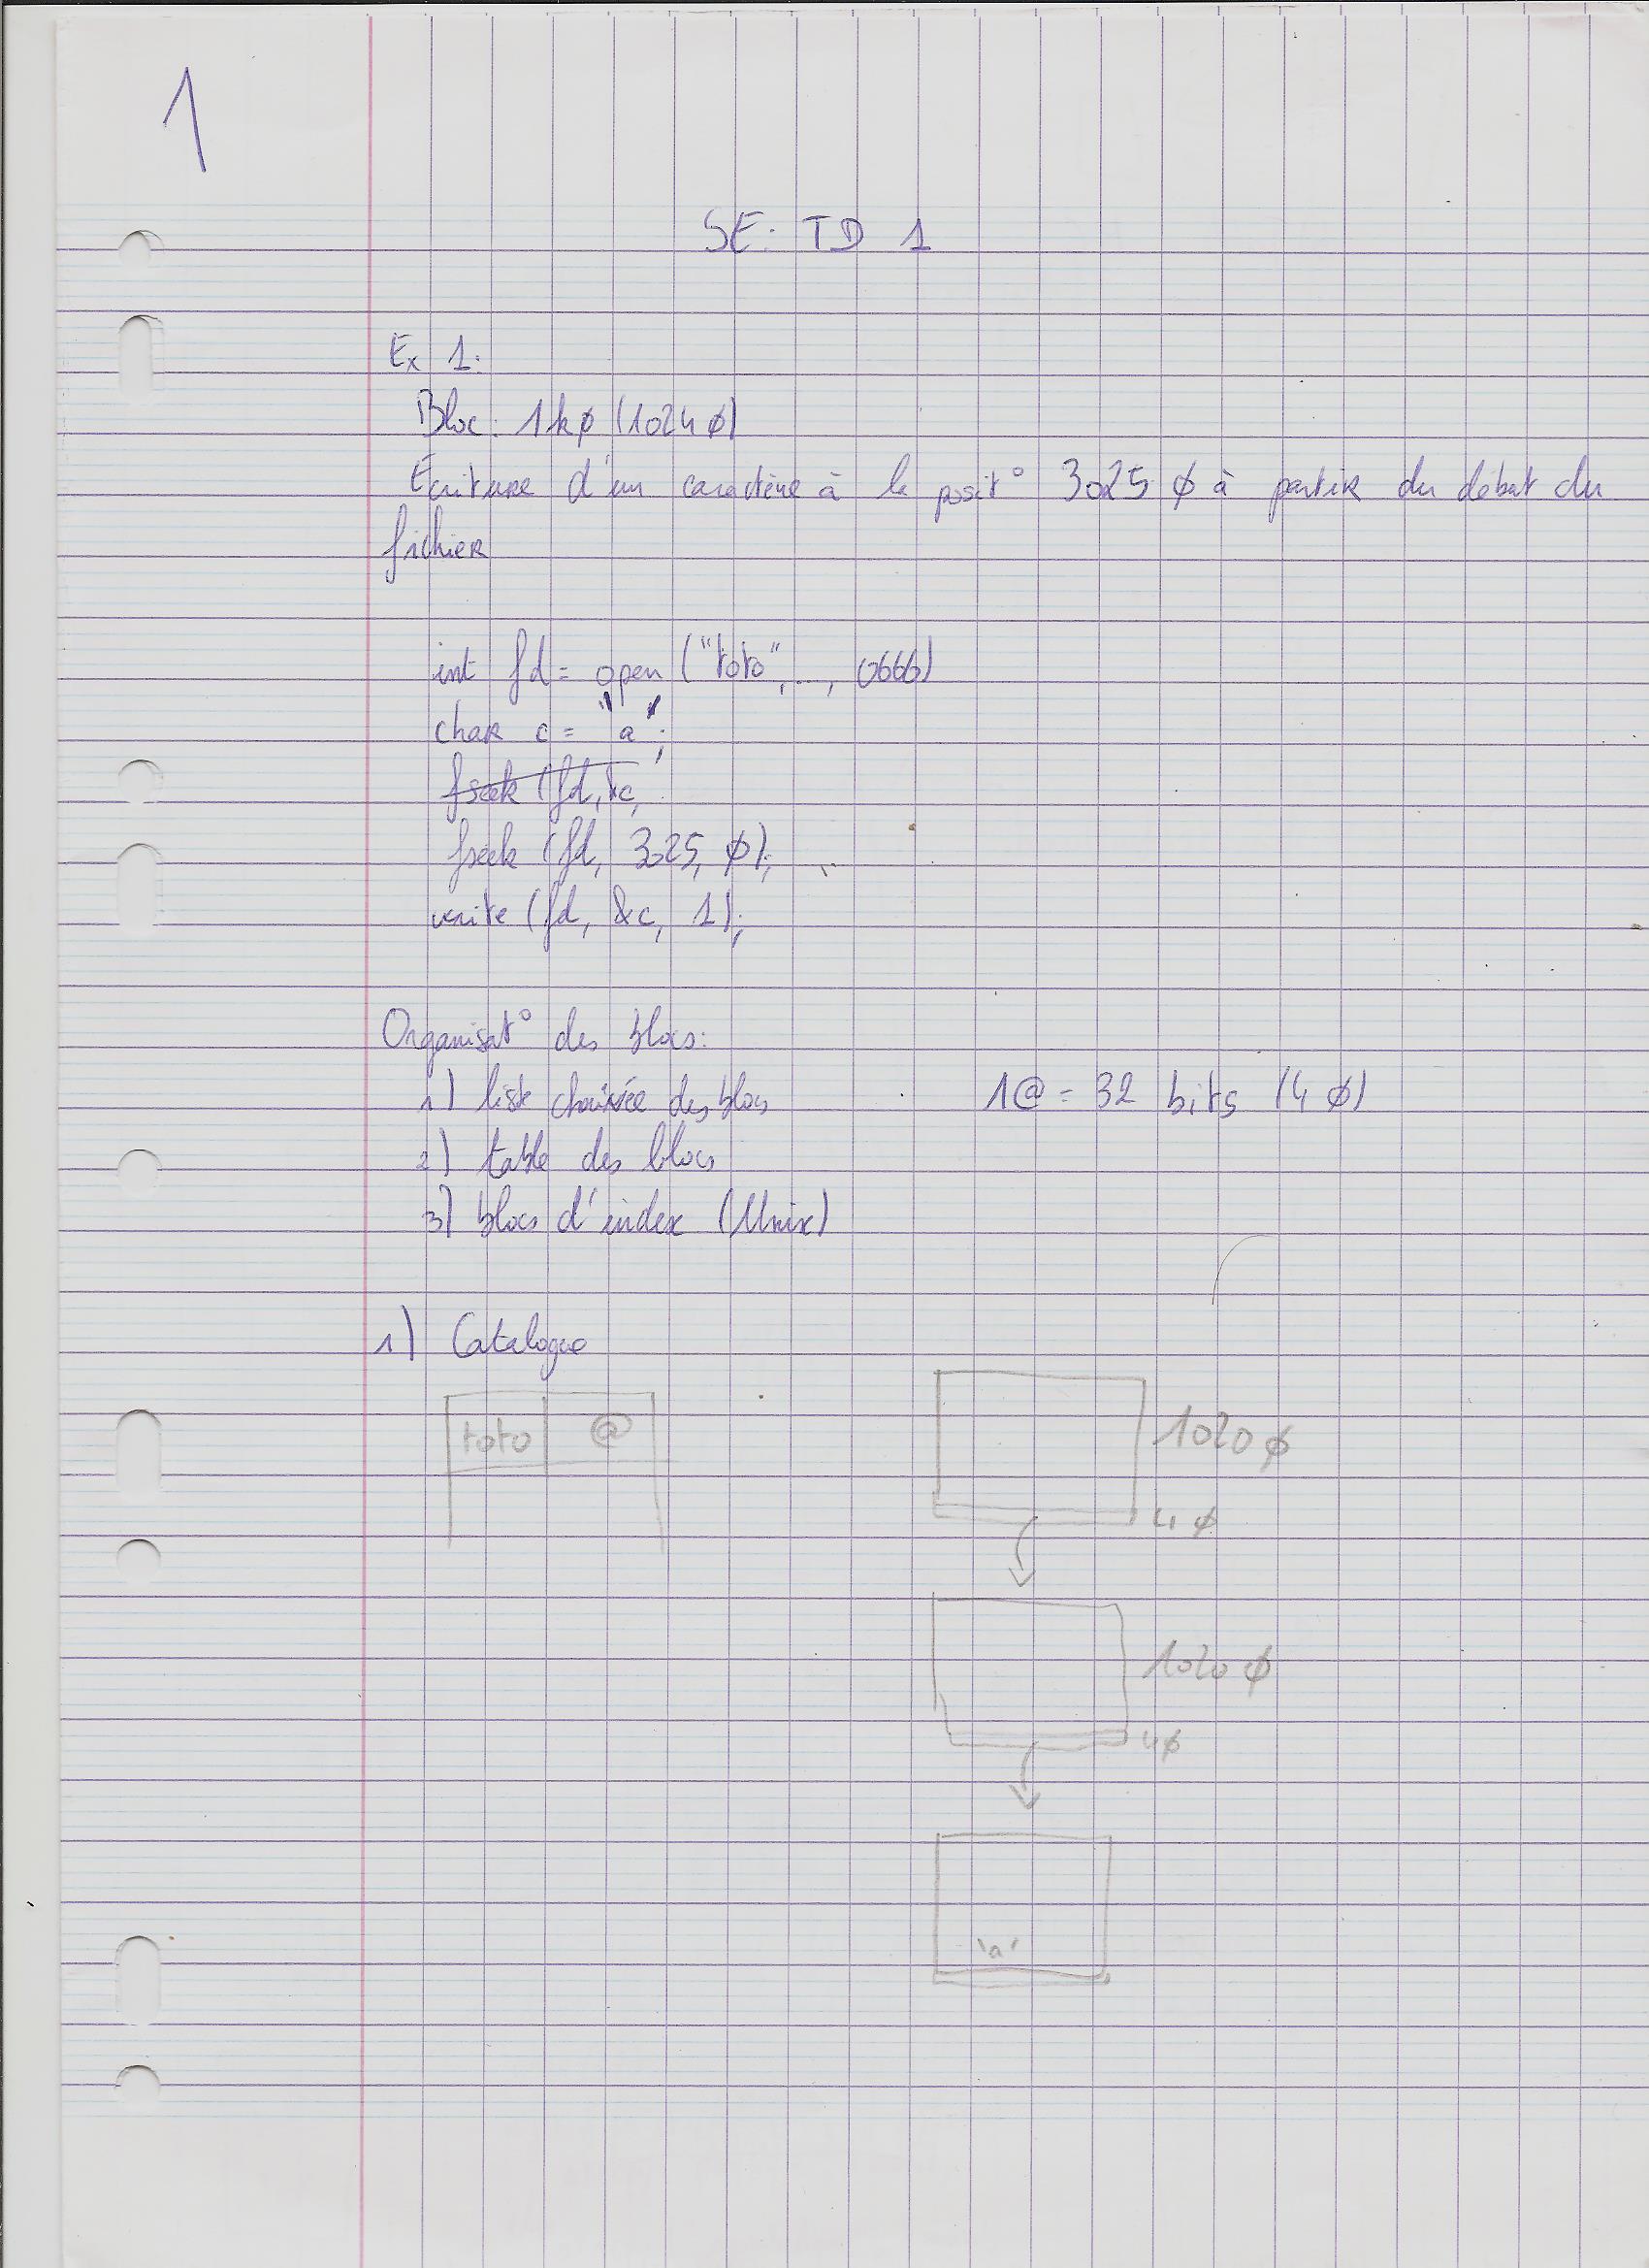 1
SE: TD 1
Ex 1:
Bloc: 1kø (1024 ø)
Ecriture d'un caractère à la posit° 3025 ø à partir du début du
fichier
int fd = open ("toto", ..., 0666)
char c = 'a';
fseek (fd, &c,
fseek (fd, 3025, ø);
write (fd, &c, 1);
Organisat° des blocs:
1) liste chaînée des blocs 1@ = 32 bits (4 ø)
2) table des blocs
3) blocs d'index (Unix)
1) Catalogue
toto @ 1020 ø
4 ø
1020 ø
4ø
'a'